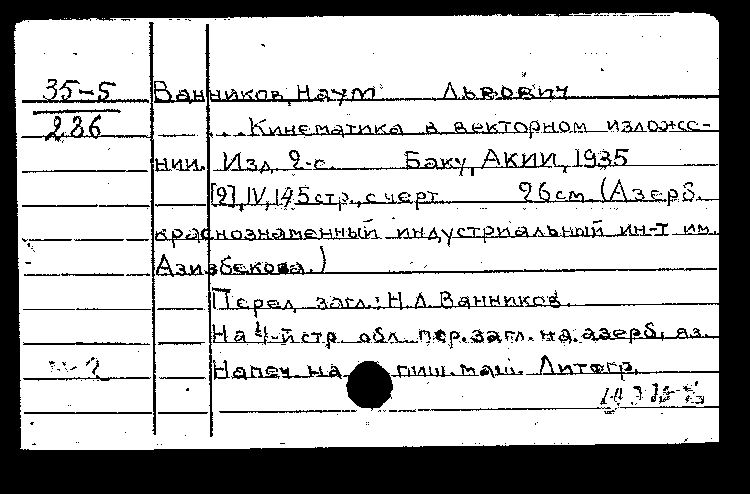 35-5 Ванников, Наум Львович
236 ...Кинематика в векторном изложе-
нии. Изд. 2-е. Баку, АКИИ, 1935
[2], IV, 145 стр., с черт. 26 см. (Азерб.
краснознаменный индустриальный ин-т им.
Азизбекова.)
Перед загл.: Н.Л. Ванников.
На 4-й стр. обл. пар. загл. на азерб. яз.
Напеч. на пиш. маш. Литогр.